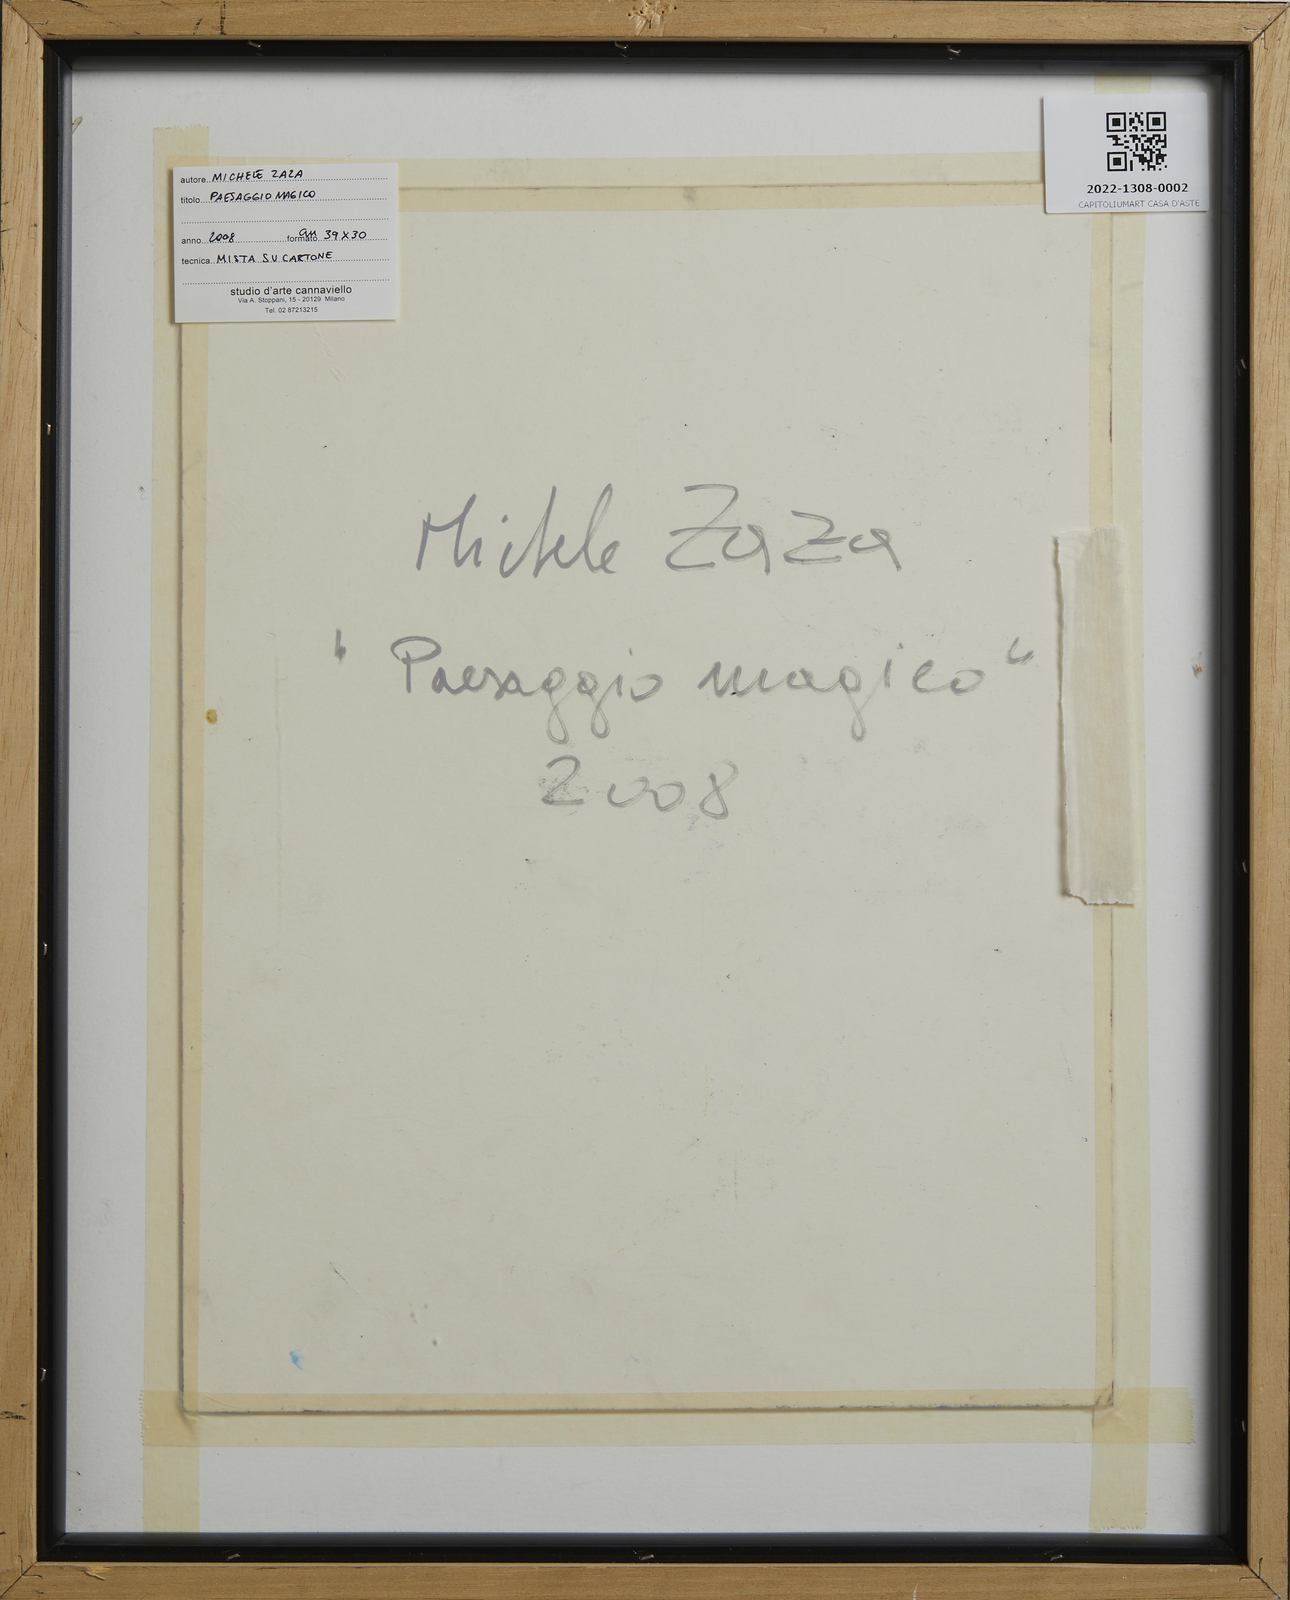 autore MICHELE ZAZA
titolo PAESAGGIO MAGICO
anno 2008 formato cm 39 X 30
tecnica MISTA SU CARTONE
studio d'arte cannaviello
Via A. Stoppani, 15 - 20129 Milano
Tel. 02 87213215
2022-1308-0002
CAPITOLIUMART CASA D'ASTE
Michele Zaza
" Paesaggio magico "
2008